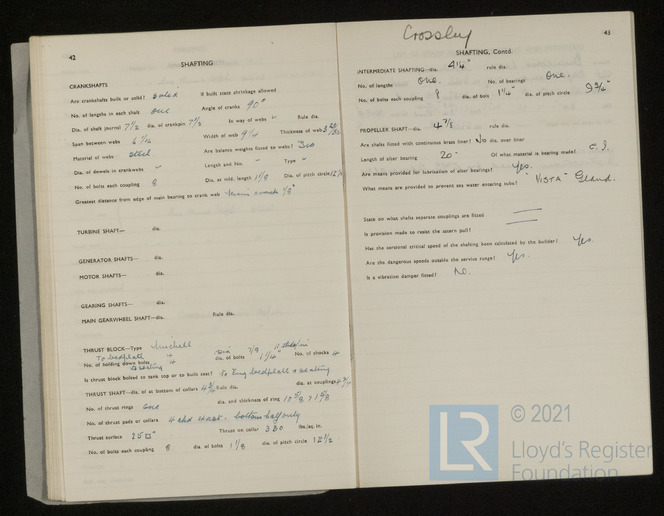 42
SHAFTING
CRANKSHAFTS
Are crankshafts built or solid? Solid If built state shrinkage allowed
No. of lengths in each shaft one Angle of cranks 90°
Dia. of shaft journal 7½ dia. of crankpin 7½ in way of webs Rule dia.
Span between webs Width of web 9¼ Thickness of web
Material of webs steel Are balance weights fitted to webs?
Dia. of dowels in crankwebs Length and No. Type
No. of bolts each coupling 8 Dia. at mid. length 1⅛ Dia. of pitch circle
Greatest distance from edge of main bearing to crank web
TURBINE SHAFT— dia.
GENERATOR SHAFTS— dia.
MOTOR SHAFTS— dia.
GEARING SHAFTS— dia.
MAIN GEARWHEEL SHAFT—dia. Rule dia.
THRUST BLOCK—Type Michell
To bedplate 4
No. of holding down bolts dia. of bolts 1¼" No. of chocks 4
Is thrust block bolted to tank top or to built seat? To Eng bedplate & seating
THRUST SHAFT—dia. of at bottom of collars 4¾ Rule dia. dia. at couplings 4¾
No. of thrust rings one dia. and thickness of ring 10⅝ × 1⅝
No. of thrust pads or collars 4 ahd 4 ast. bottom half only
Thrust surface 25 □" Thrust on collar 320 lbs./sq. in.
No. of bolts each coupling 8 dia. of bolts 1⅛ dia. of pitch circle 12½
43
Crossley
SHAFTING, Contd.
INTERMEDIATE SHAFTING—dia. 4¼" rule dia.
No. of lengths One. No. of bearings One.
No. of bolts each coupling 8 dia. of bolts 1¼" dia. of pitch circle 9¾"
PROPELLER SHAFT—dia. 4⅞ rule dia.
Are shafts fitted with continuous brass liner? No dia. over liner
Length of after bearing 20" Of what material is bearing made? C.I.
Are means provided for lubrication of after bearings? Yes.
What means are provided to prevent sea water entering tube? "VISTA" Gland.
State on what shafts separate couplings are fitted
Is provision made to resist the astern pull?
Has the torsional critical speed of the shafting been calculated by the builder? Yes.
Are the dangerous speeds outside the service range? Yes.
Is a vibration damper fitted? No.
LR
© 2021
Lloyd's Register
Foundation